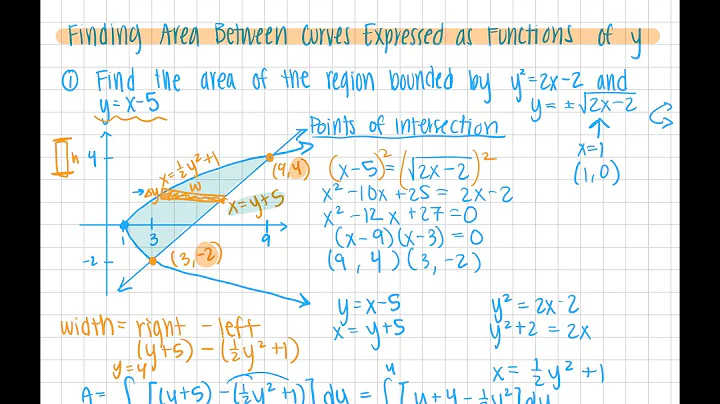 Finding Area Between Curves Expressed as Functions of y
① Find the area of the region bounded by y²=2x-2 and
y=x-5
y=±√2x-2
x=1
(1,0)
Points of Intersection
(x-5)²=(√2x-2)²
x²-10x+25=2x-2
x²-12x+27=0
(x-9)(x-3)=0
(9,4)(3,-2)
h
4
x=½y²+1
(9,4)
Δy
w
x=y+5
1
3
9
-2
(3,-2)
y=x-5
x=y+5
y²=2x-2
y²+2=2x
x=½y²+1
width= right -left
(y+5)-(½y²+1)
y=4
A=∫[(y+5)-(½y²+1)]dy=∫⁴[y+4-½y²]dy